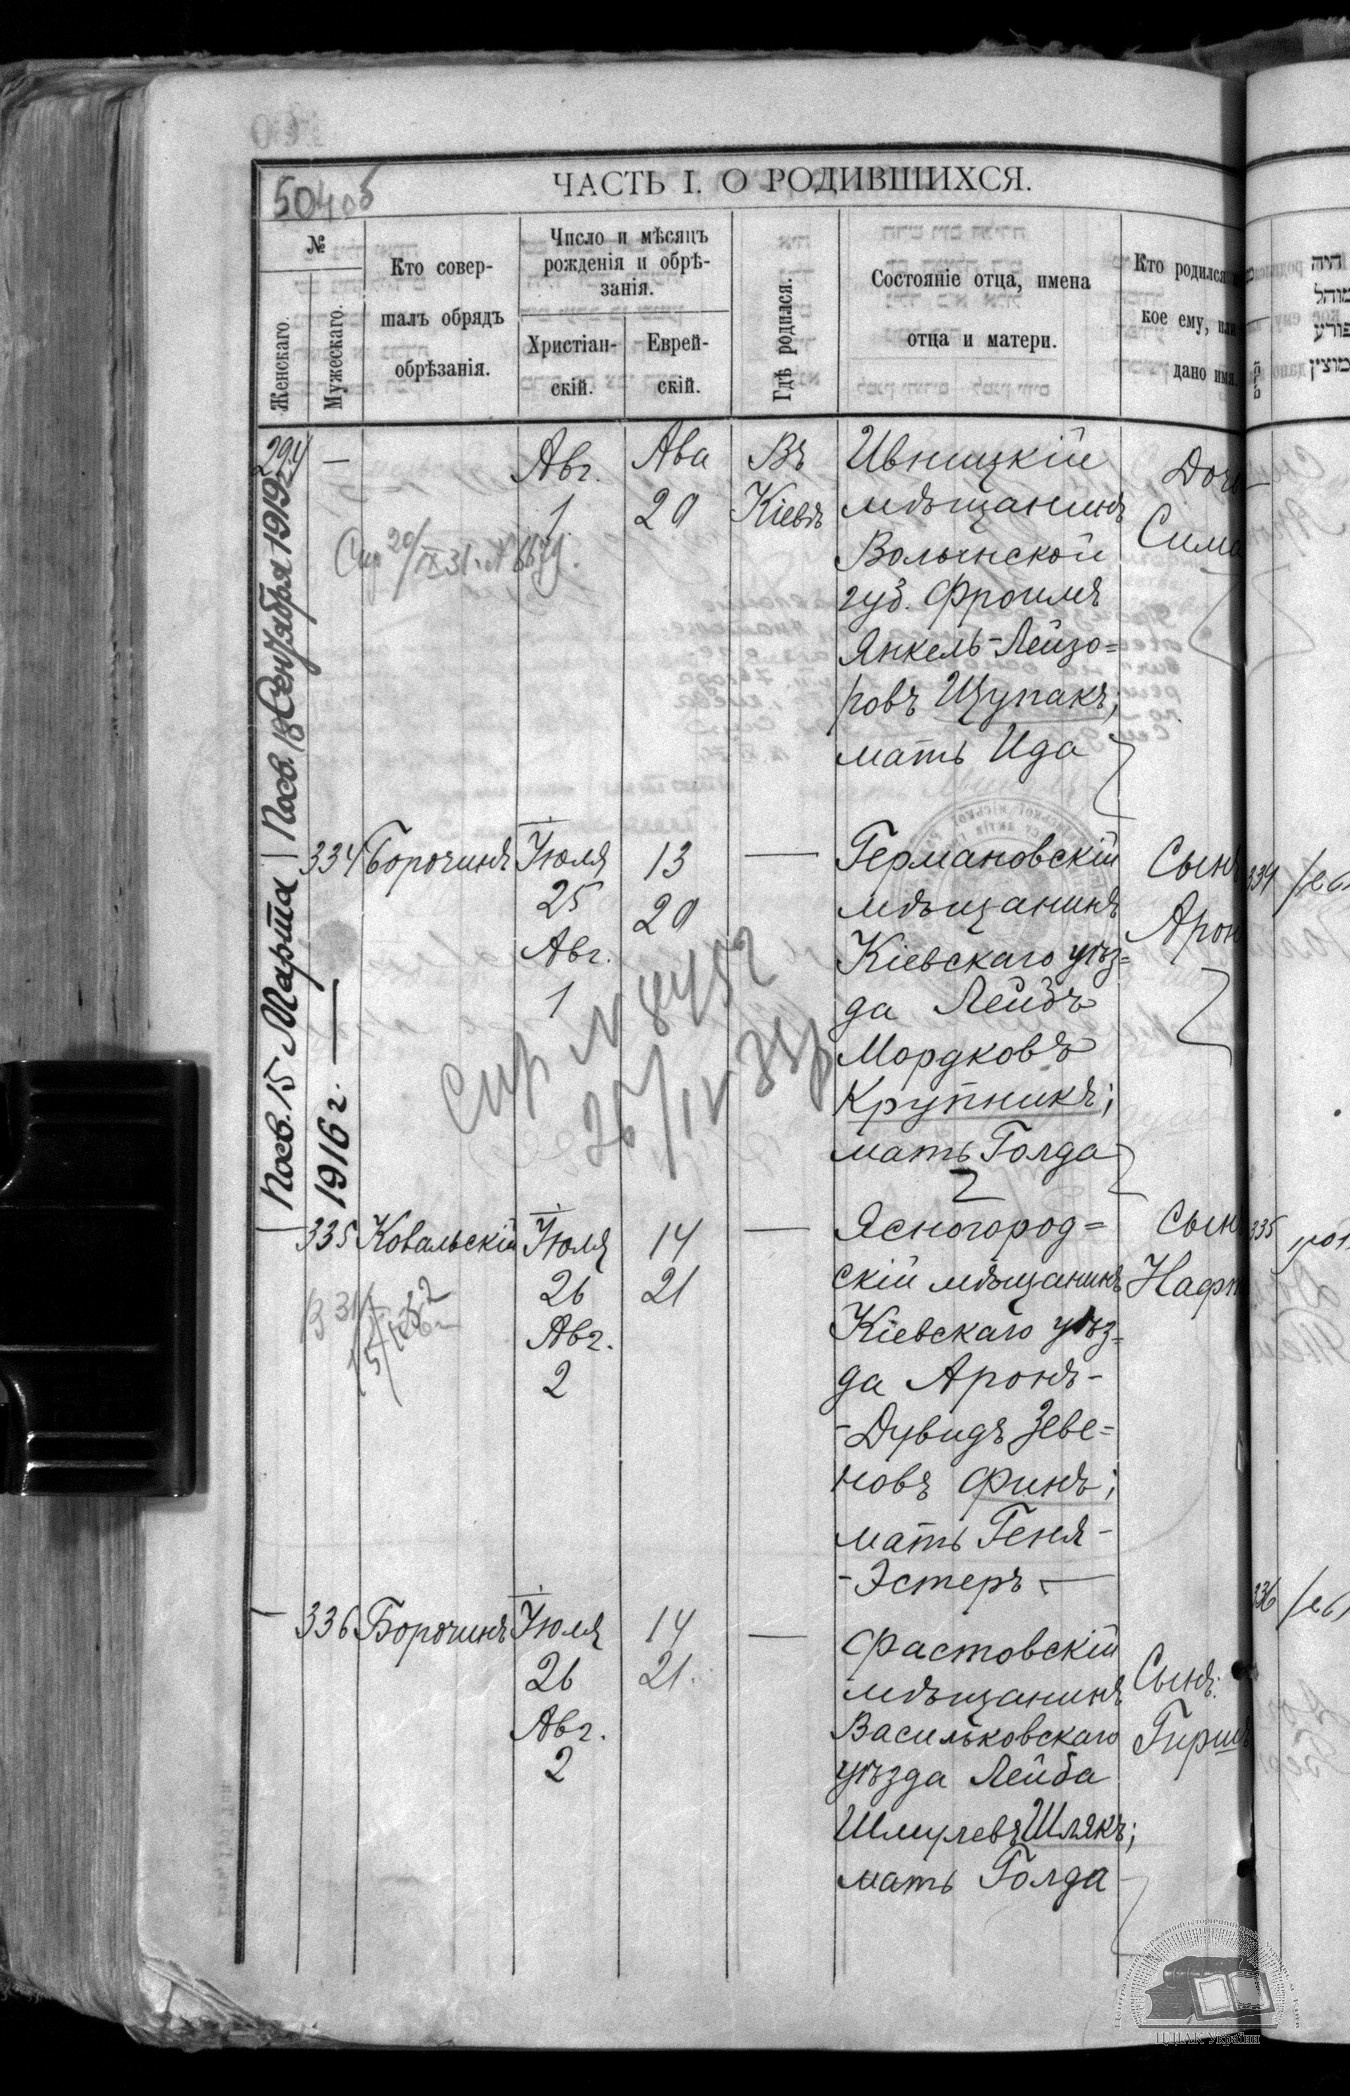 504 об
ЧАСТЬ I. О РОДИВШИХСЯ.
№
Женскаго.
Мужескаго.
Кто совер-
шалъ обрядъ
обрѣзанія.
Число и мѣсяцъ
рожденія и обрѣ-
занія.
Христіан-
скій.
Еврей-
скій.
Гдѣ родился.
Состояніе отца, имена
отца и матери.
Кто родился
кое ему, или
дано имя.
294
—
Авг.
1
Ава
20
Въ
Кіевѣ
Ивницкій
мѣщанинъ
Волынской
губ. Фроимъ
Янкель-Лейзо=
ровъ Щупакъ;
мать Ида
Дочь
Сима
Посв. 15 Марта
1916 г.
Посв. 18 Сентября 1919 г.
334
Борочинъ
Іюля
25
Авг.
1
13
20
—
Германовскій
мѣщанинъ
Кіевскаго уѣз=
да Лейбъ
Мордковъ
Крупникъ;
мать Голда
Сынъ
Арон
334
Спр № 8452
26/IV
—
335
Ковальскій
Іюля
26
Авг.
2
14
21
—
Ясногород=
скій мѣщанинъ
Кіевскаго уѣз=
да Аронъ-
-Дувидъ Зеве=
новъ Финъ;
мать Геня-
-Эстеръ —
Сын
Нафт
335
—
336
Борочинъ
Іюля
26
Авг.
2
14
21.
—
Фастовскій
мѣщанинъ
Васильковскаго
уѣзда Лейба
Шмулевъ Шлякъ;
мать Голда
Сынъ:
Гиршъ
336
ЦДІАК України